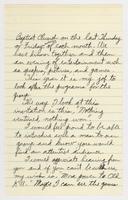 Baptist Church on the last Thursday
or Friday of each month. We
have dinner together and then
an evening of entertainment such
as singing, pictures, and games.
This year it is my job to
look after the programs for the
group.
The way I look at this
invitation is this, "Nothing
ventured, nothing won."
I would feel proud to be able
to introduce such a man to our
group and know you would
find an attentive audience.
I would appreciate hearing from
you and if you can't
my wish is, More power to Old
K.U. Maybe I can see the game